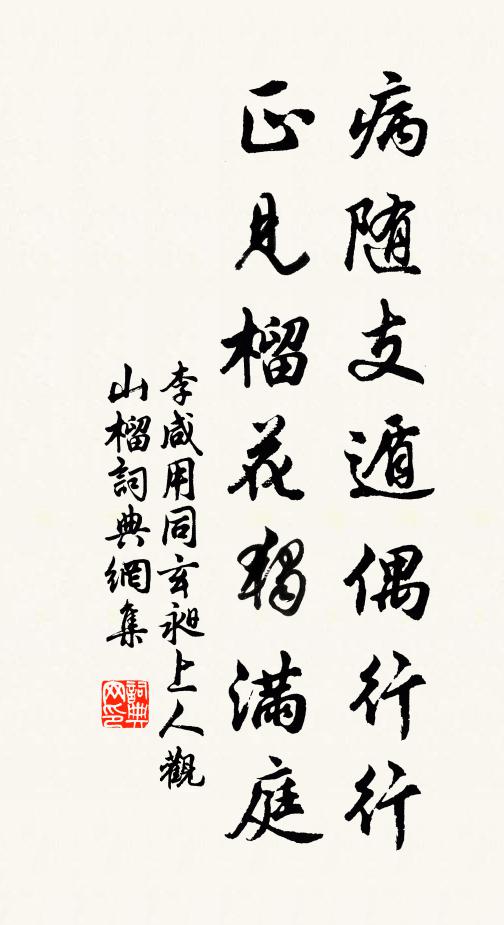 病随支遁偶行行
正見榴花獨滿庭
李咸用同玄昶上人觀
山榴詞典網集
詞典
网印